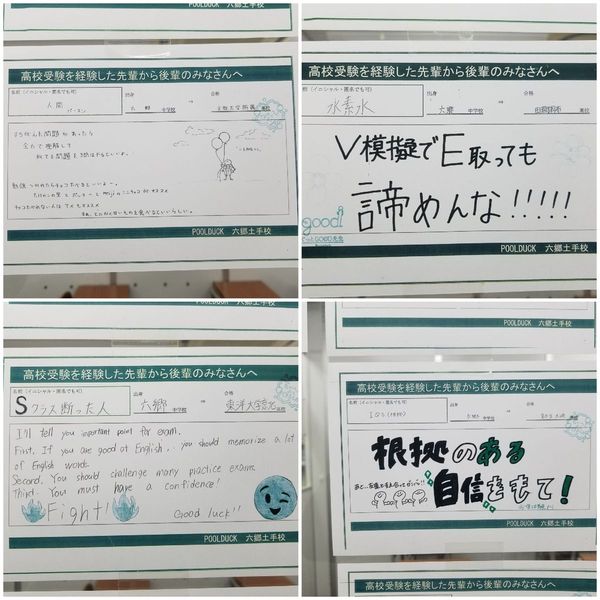 高校受験を経験した先輩から後輩のみなさんへ
名前(イニシャル・匿名でも可)
人間
出身
六郷 中学校
⇒
合格
高校
まちがえた問題があったら
全力で理解して
似てる問題を3問はやるといいよ。
勉強つかれたらチョコたべるといーよー。
POOLDUCK 六郷土手校
高校受験を経験した先輩から後輩のみなさんへ
名前(イニシャル・匿名でも可)
水素水
出身
六郷 中学校
⇒
合格
高校
V模擬でE取っても
諦めんな!!!!!
good!
POOLDUCK 六郷土手校
高校受験を経験した先輩から後輩のみなさんへ
名前(イニシャル・匿名でも可)
Sクラス断った人
出身
六郷 中学校
⇒
合格
東洋大学京北 高校
I'll tell you important point for exam.
First, If you are good at English, you should memorize a lot
of English words.
Second, You should challenge many practice exam.
Third, You must have a confidence!
Fight!
Good luck!!
POOLDUCK 六郷土手校
高校受験を経験した先輩から後輩のみなさんへ
名前(イニシャル・匿名でも可)
出身
中学校
⇒
合格
高校
根拠のある
自信をもて!
POOLDUCK 六郷土手校
高校受験を経験した先輩から後輩のみなさんへ